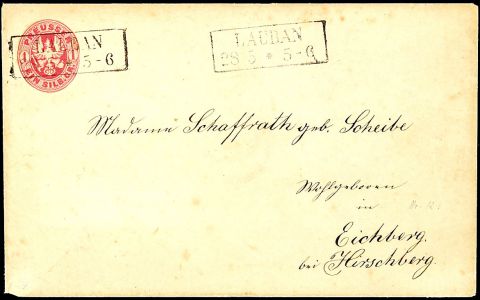 PREUSSEN
1 1
EIN SILB.GR.
LAUBAN
5-6
LAUBAN
28 5 * 5-6
Madame Schaffrath geb. Scheibe
Wohlgeboren
in
Eichberg.
bei Hirschberg.